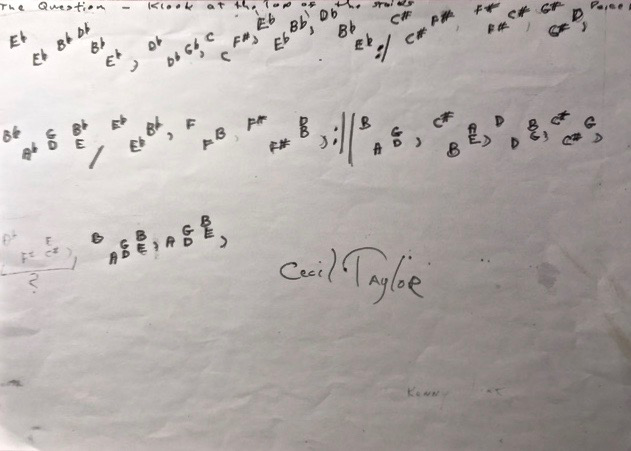 The Question – Klook at the top of the stairs
Eb Eb Bb Db Bb Eb , Db Db Gb C C F# , Eb Eb Bb , Db Bb Eb :/ C# C# F# F# F# C# G# C# D ,
Bb Ab G D Bb E / Eb Eb Bb , F F B F# F# D B , :|| B A G D , C# B A E , D D B G , C# C# G D
? B A G D B E , A G D B E ,
Cecil Taylor